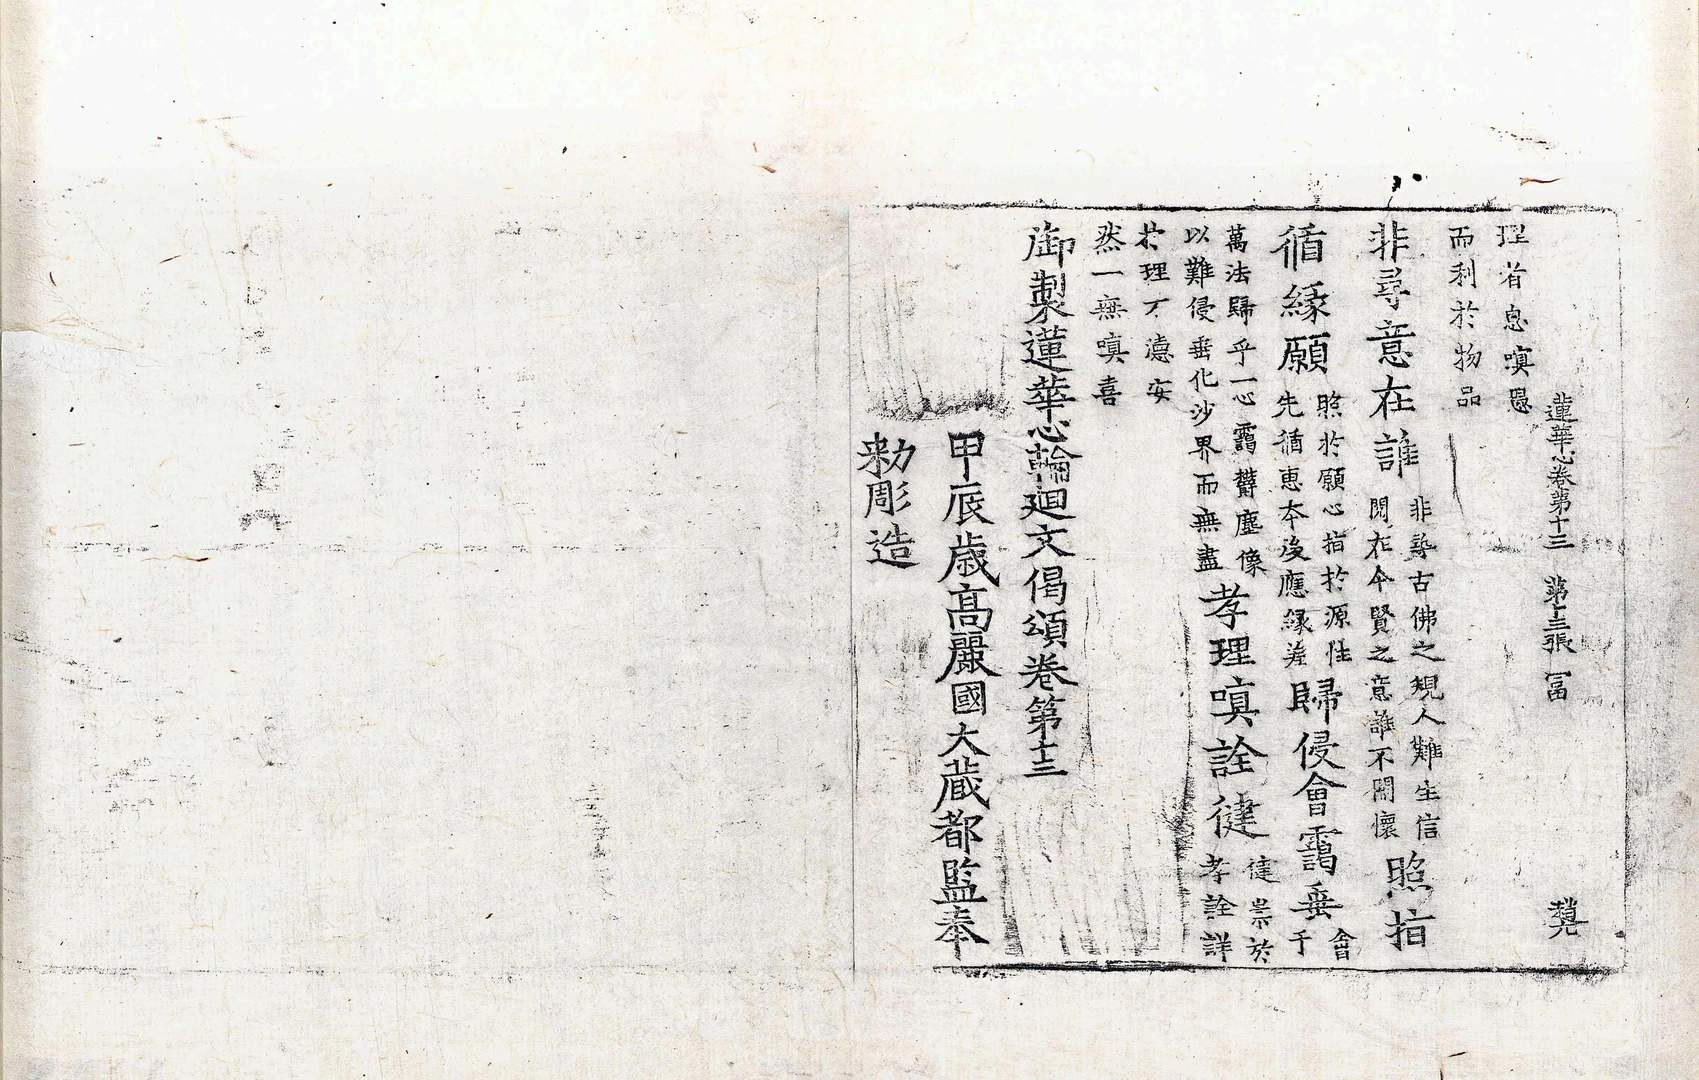 蓮華心卷第十三　第十三張　冨　趙元
理者息嗔愚
而利於物品
非尋意在誰　非尋古佛之規人難生信
閱在今賢之意誰不開懷　照指
循緣願　照於願心指於源性
先循惠本後應緣差　歸侵會靄垂　會
于
萬法歸乎一心靄欝塵像
以難侵垂化沙界而無盡　孝理嗔詮健　健崇於
孝詮詳
於理不濾安
然一無嗔喜
御製蓮華心輪廻文偈頌卷第十三
甲辰歲高麗國大藏都監奉
勑彫造